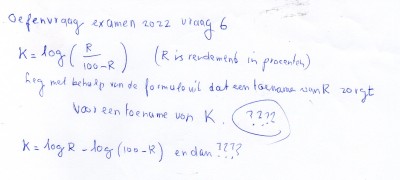 Oefenvraag examen 2022 vraag 6
K = log ( R / 100-R ) (R is rendement in procenten)
Leg met behulp van de formule uit dat een toename van R zorgt
voor een toename van K. ????
K = log R - log (100-R) en dan ????